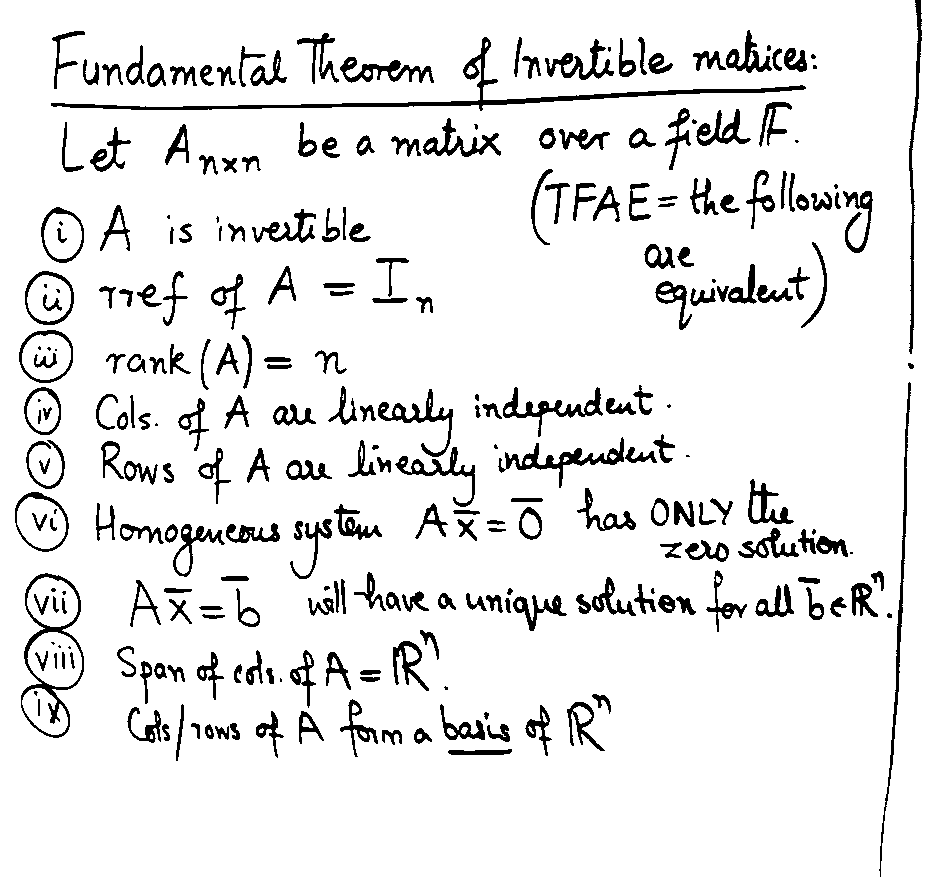 Fundamental Theorem of Invertible matrices:
Let Aₙₓₙ be a matrix over a field 𝔽.
(TFAE = the following are equivalent)
(i) A is invertible
(ii) rref of A = Iₙ
(iii) rank (A) = n
(iv) Cols. of A are linearly independent.
(v) Rows of A are linearly independent.
(vi) Homogeneous system Ax̅ = 0̅ has ONLY the
zero solution.
(vii) Ax̅ = b̅ will have a unique solution for all b̅ ∈ ℝⁿ.
(viii) Span of cols. of A = ℝⁿ.
(ix) Cols/rows of A form a basis of ℝⁿ